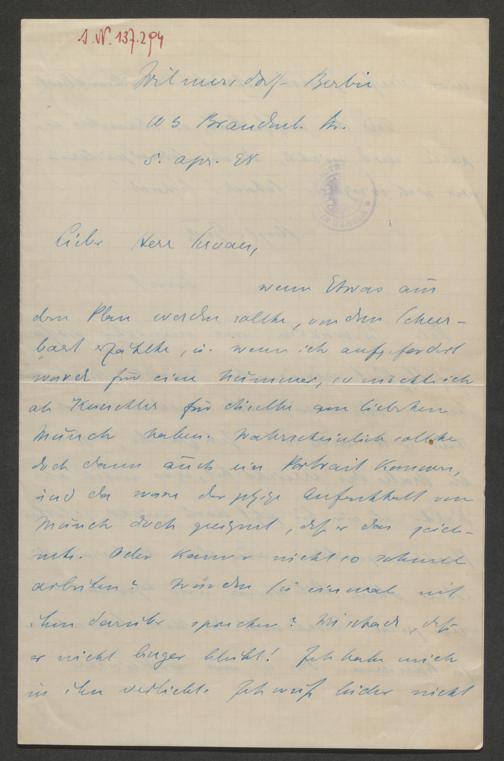 I.N. 137.294
Wilmersdorf-Berlin
Brandenb. Str.
5. Apr.
Lieber Herr
wenn Etwas aus
dem Plan werden sollte, von dem Scheer-
bart erzählte, u. wenn ich aufgefordert
werde für eine Nummer, so möchte ich
als Künstler für dieselbe am liebsten
Munch haben. Wahrscheinlich sollte
doch dann auch ein Portrait kommen,
und da wäre der Aufenthalt von
Munch doch geeignet, daß er das zeich-
nete. Oder kann er nicht so schnell
arbeiten? Würden Sie einmal mit
ihm darüber sprechen? Wie schade daß
er nicht länger bleibt! Ich habe mich
in ihn verliebt. Ich weiß leider nicht